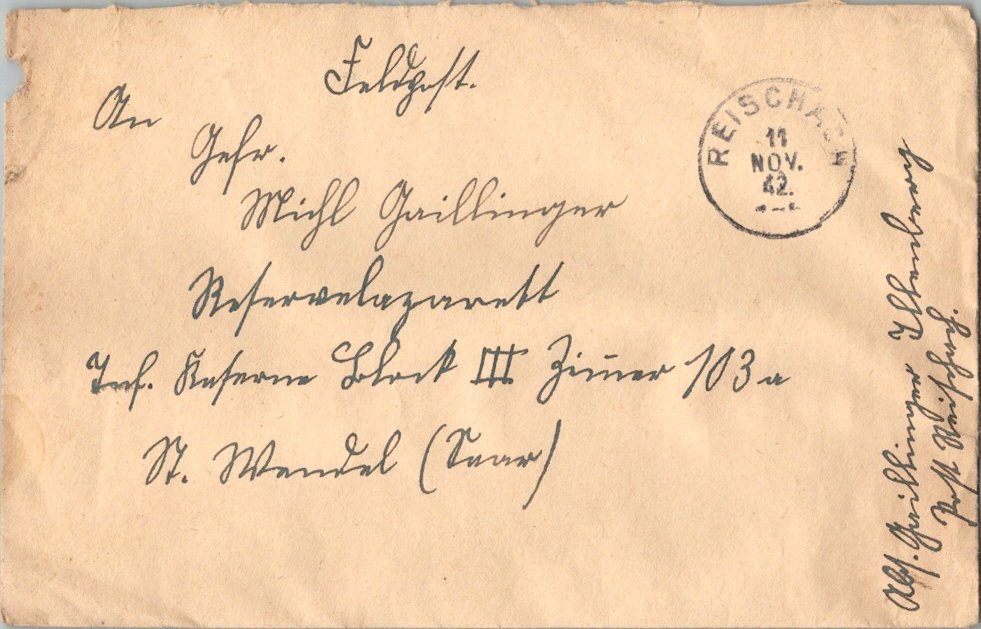 Feldpost.
An
Gefr.
Michl Gaillinger
Reservelazarett
Inf. Kaserne Block III Zimmer 103 a
St. Wendel (Saar)
REISCHACH
11
NOV.
42.
Abs. Gaillinger
Post Reischach.